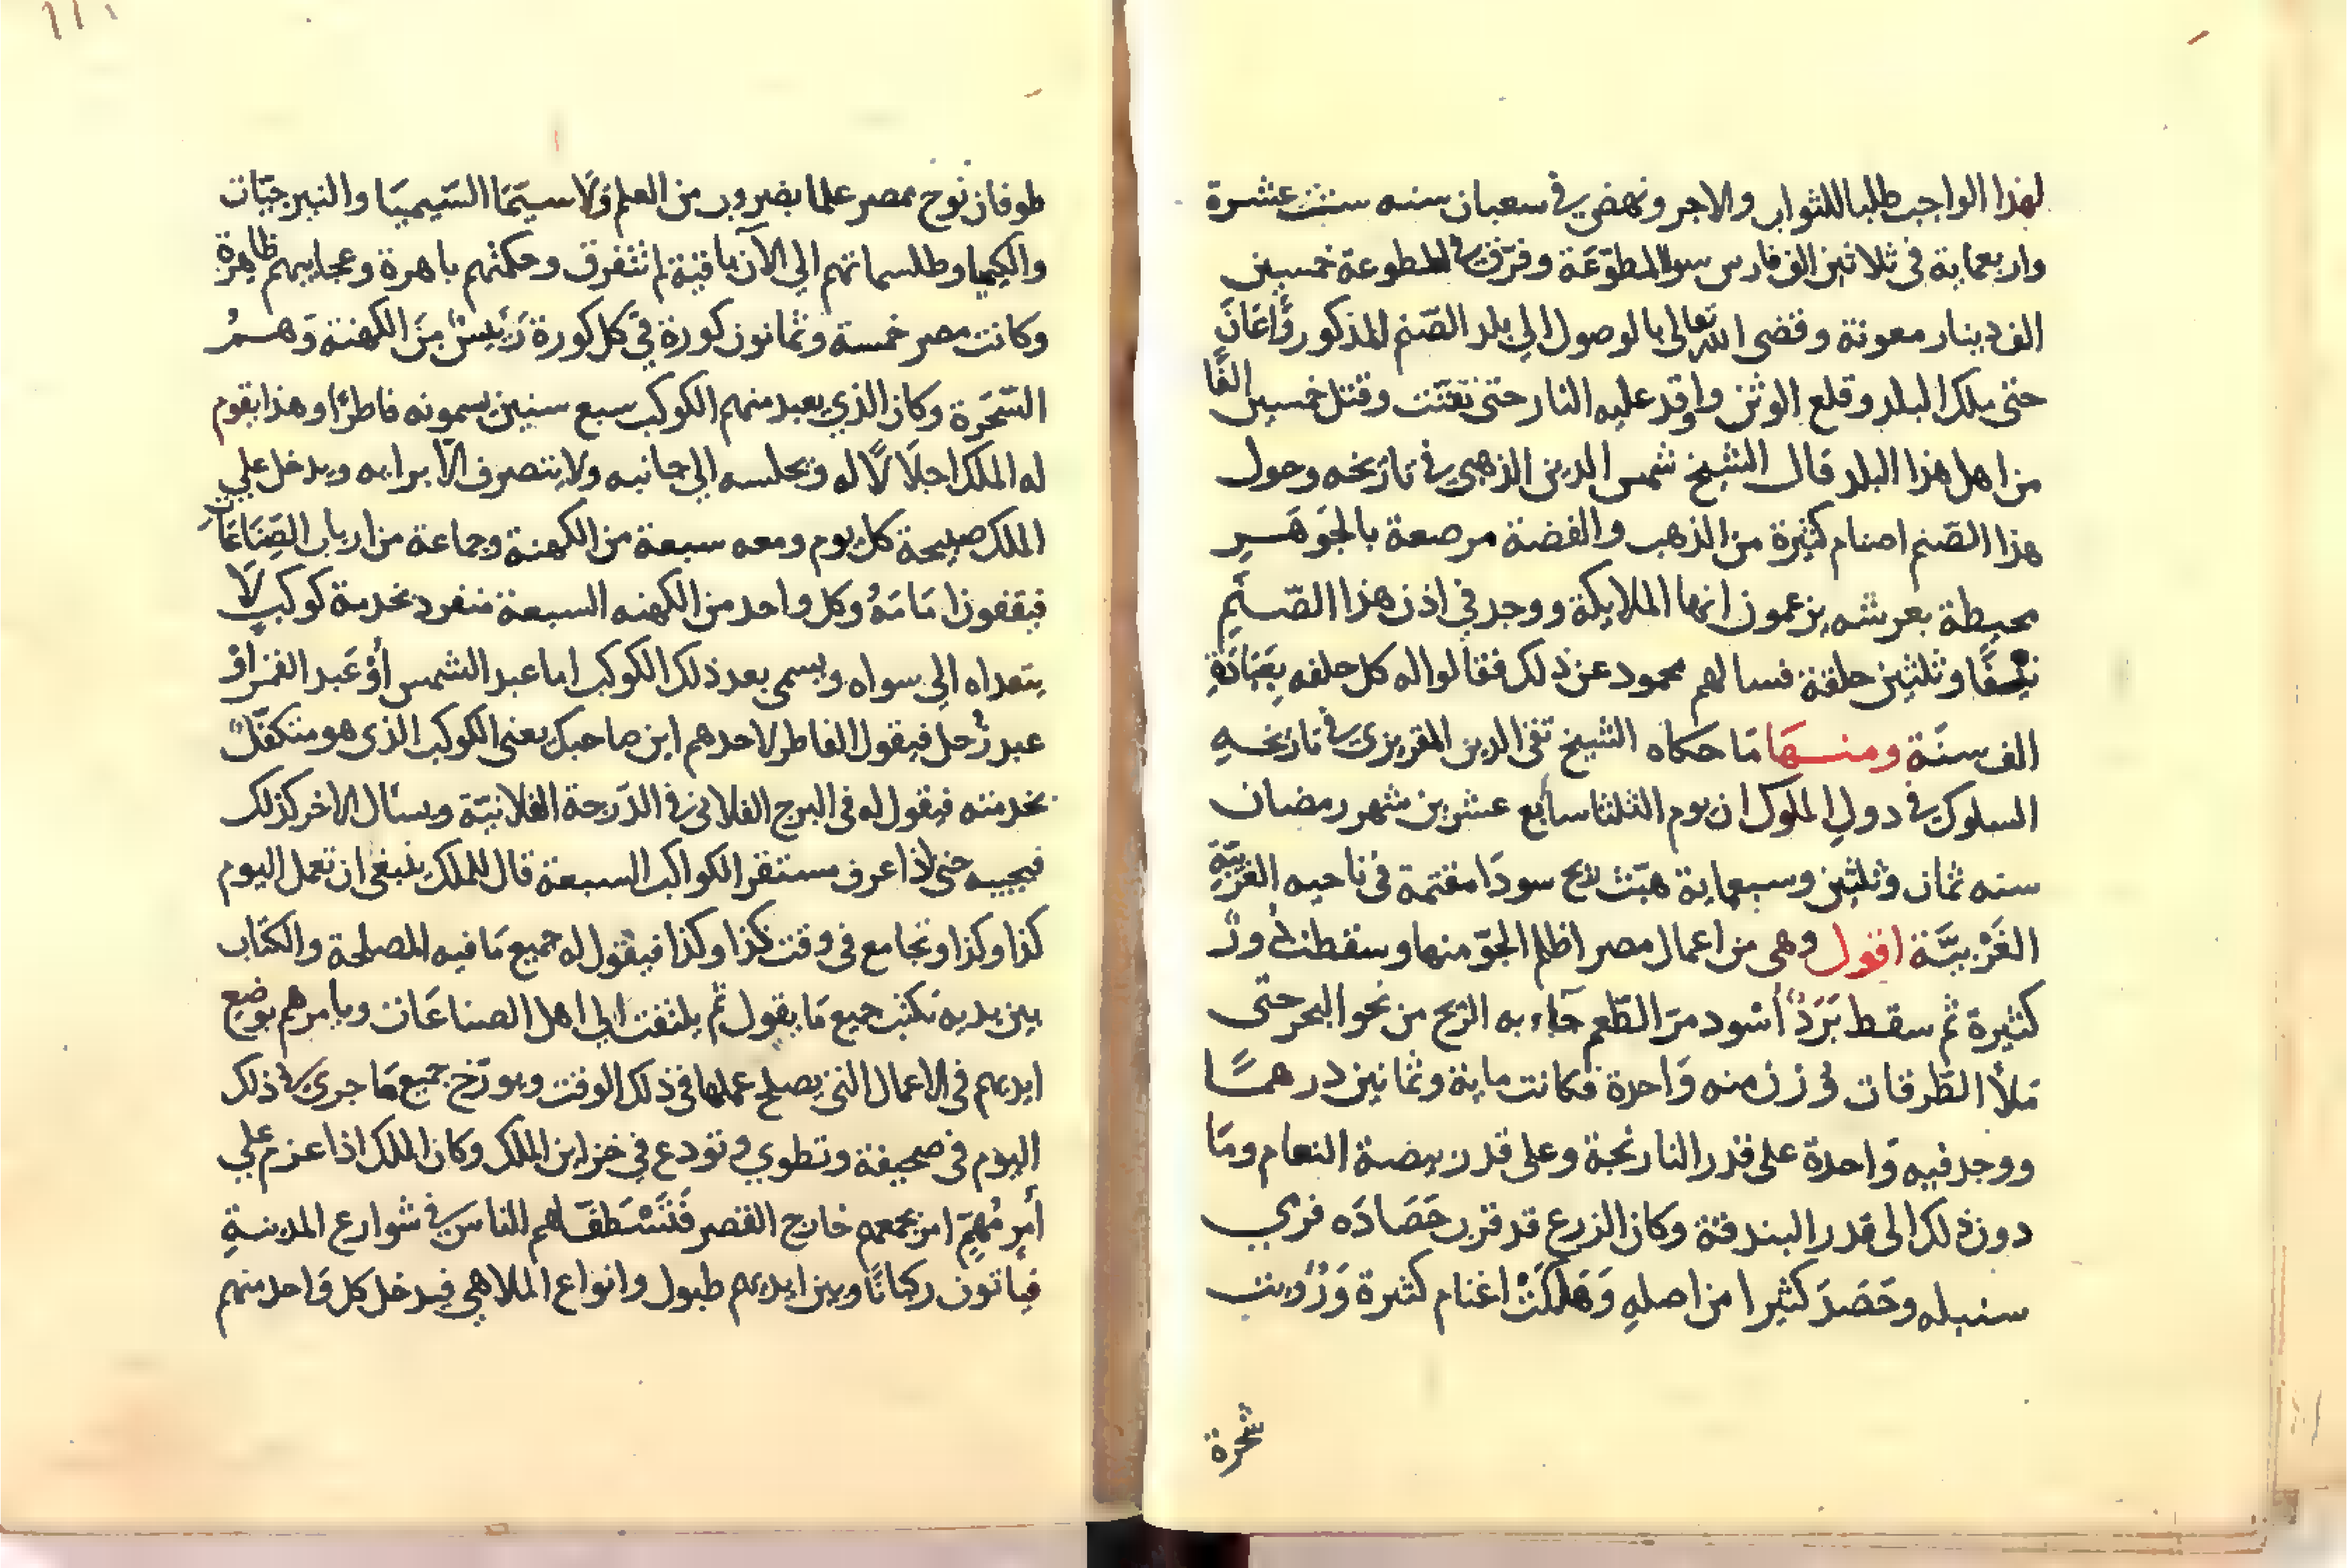 لهذا الواجب طلبا للثواب والاجر ونهض في سعبان سنه ستت عشرة
واربعماية في ثلاثين الف فارس سوا المطوّعَة وفرّق في المطوعة خمسين
الف دينار معونة وقضى الله تعالى بالوصول الي بلد الصّنم المذكور وأَعَانَ
حتى ملك البلد وقلع الوثن واوقد عليه النار حتى تفتّت وقتل خمسين الفًا
من اهل هذا البلد قال الشيخ شمس الدين الذهبي في تاريخه وحول
هذا الصّنم اصنام كثيرة من الذهب والفضة مرصعة بالجَوهَرِ
محيطة بعرشه يزعمون انها الملايكة ووجد في اذن هذا الصّنَمِ
نيفًا وثلثين حلقة فسالهم محمود عن ذلك فقالوا له كل حلقه بِعَبَادَةِ
الف سنَة ومنهَا مَا حكاه الشيخ تقي الدين المقريزي في تاريخهِ
السلوك في دولِ الملوك ان يوم الثلثا سابع عشرين شهر رمضان
سنه ثمان وثلثين وسبعماية هبّت ريح سودَا مقتمة في ناحيه الغربيّةِ
الغَرْبيَّة اقول وهي من اعمال مصر اظلم الجوّ منها وسقطت دُورٌ
كثيرة ثم سقط بَرَدٌ أسْود مرّ الطّعم جاء به الريح من نحو البحر حتى
مَلأ الطّرقات وُزن منه وَاحدة فكانت ماية وثمانين درهمًا
ووجد فيه وَاحدة على قدر النارنجة وعلى قدر بيضة النعام ومَا
دون ذلك الى قدر البندقة وكان الزرع قد قرب حَصَادَه فرمي
سنبله وحَصَدَ كثيرا من اصلهِ وَهَلكَتْ اغنام كثيرة وَرُؤيت
شجرة
طوفان نوح بمصر علما بضروب من العلم وَلَا سيَمَا السّيميَا والنيرجيّات
والكيميا وطلسماتهم الي الآن باقية لم تتفرق وحكمتهم باهرة وعجايبهم ظاهرة
وكانت مصر خمسة وثمانون كورة في كل كورة رَئيسٌ مِنَ الكهنة وَهــمُ
السّحَرة وكان الذي يعبد منهم الكوكب سبع سنين يسمونه فاطرًا وهذا يقوم
له الملك اجلَالًا له ويجلسه الي جانبه ولا يتصرف الّا برايه ويدخل علي
الملك صبيحة كل يوم ومعه سبعة من الكهنة وجماعة من ارباب الصِّنَاعَاتِ
فيقفون امَامَهُ وكل واحد من الكهنه السبعة منفرد بخدمة كوكبٍ لَا
يتعداه الي سواه ويسمى بعد ذلك الكوكب اما عبد الشمس أَوْ عَبد القمَر اَوْ
عبد زُحل فيقول الفاطر لاحدهم اين صاحبك يعني الكوكب الذي هو متكفّلٌ
بخدمته فيقول له في البرج الفلاني في الدّرجة الفلانيّة ويسأل الاخر كذلك
فيجيبه حتى اذا عرف مستقر الكواكب السبعة قال للملك ينبغي ان تعمل اليوم
كذا وكذا وتجامع في وقت كذا وكذا فيقول له جميع مَا فيه المصلحة والكتَاب
بين يديه تكتب جميع مَا يقول ثم يلتفت الي اهل الصناعَات ويامرهم بوضع
ايديهم في الاعمال التي يصلح عملها في ذلك الوقت ويورّخ جميع مَا جرى في ذلك
اليوم في صحيفة وتطوي وتودع في خزاين الملك وكان الملك اذا عزم علي
أمرٍ مُهِمّ امر بجمعهم خارج القصر فَتَسْطَفّ لهم الناس في شوارع المدينةِ
فياتون ركبانًا وبين ايديهم طبول وانواع الملاهي فيدخل كل وَاحد منهم